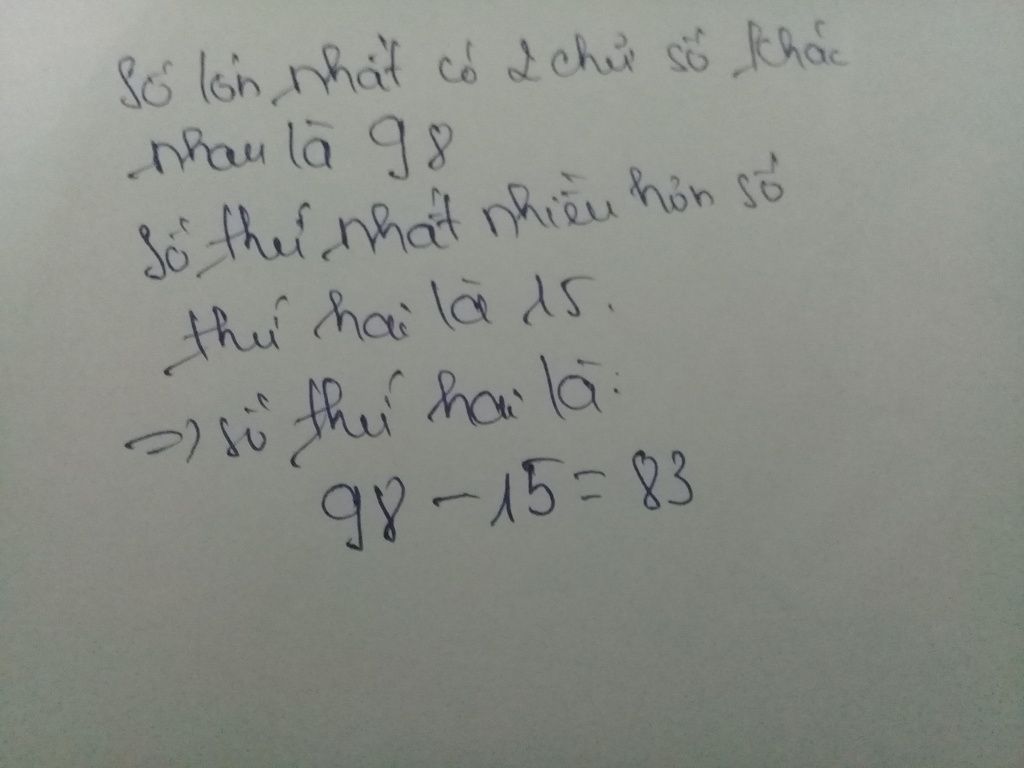 Số lớn nhất có 2 chữ số khác
nhau là 98
Số thứ nhất nhiều hơn số
thứ hai là 15.
=> số thứ hai là:
98 - 15 = 83